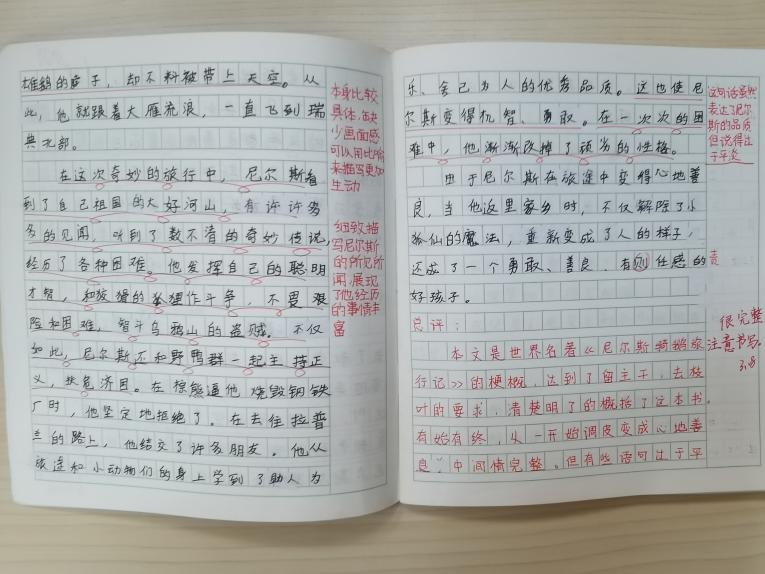 雄鹅的脖子，却不料被带上天空。从
此，他就跟着大雁流浪，一直飞到瑞
典北部。
在这次奇妙的旅行中，尼尔斯看
到了自己祖国的大好河山，有许许多
多的见闻，听到了数不清的奇妙传说，
经历了各种困难。他发挥自己的聪明
才智，和狡猾的狐狸作斗争，不畏艰
险和困难，智斗乌鸦山的盗贼。不仅
如此，尼尔斯还和野鸭群一起主持正
义，扶危济困。在棕熊逼他烧毁钢铁
厂时，他坚定地拒绝了。在去往拉普
兰的路上，他结交了许多朋友。他从
旅途和小动物们的身上学到了助人为
本身比较
具体，缺
少画面感
可以用比
来描写更加
生动
细致描
写尼尔斯
的所见所
闻，展现
了他经历
的事情丰
富
乐、舍己为人的优秀品质。这也使尼
尔斯变得机智、勇敢。在一次次的困
难中，他渐渐改掉了顽劣的性格。
由于尼尔斯在旅途中变得心地善
良，当他返里家乡时，不仅解除了小
狐仙的魔法，重新变成了人的样子，
还成了一个勇敢、善良、有则任感的
好孩子。
这句话虽然
表达了尼尔
斯的品质
但说得过
于平淡
责
总评：
本文是世界名著《尼尔斯骑鹅旅
行记》的梗概，达到了留主干，去枝
叶的要求，清楚明了的概括了这本书。
有始有终，从一开始调皮变成心地善
良，中间情完整。但有些语句过于平
很完整
注意书写。
3.8